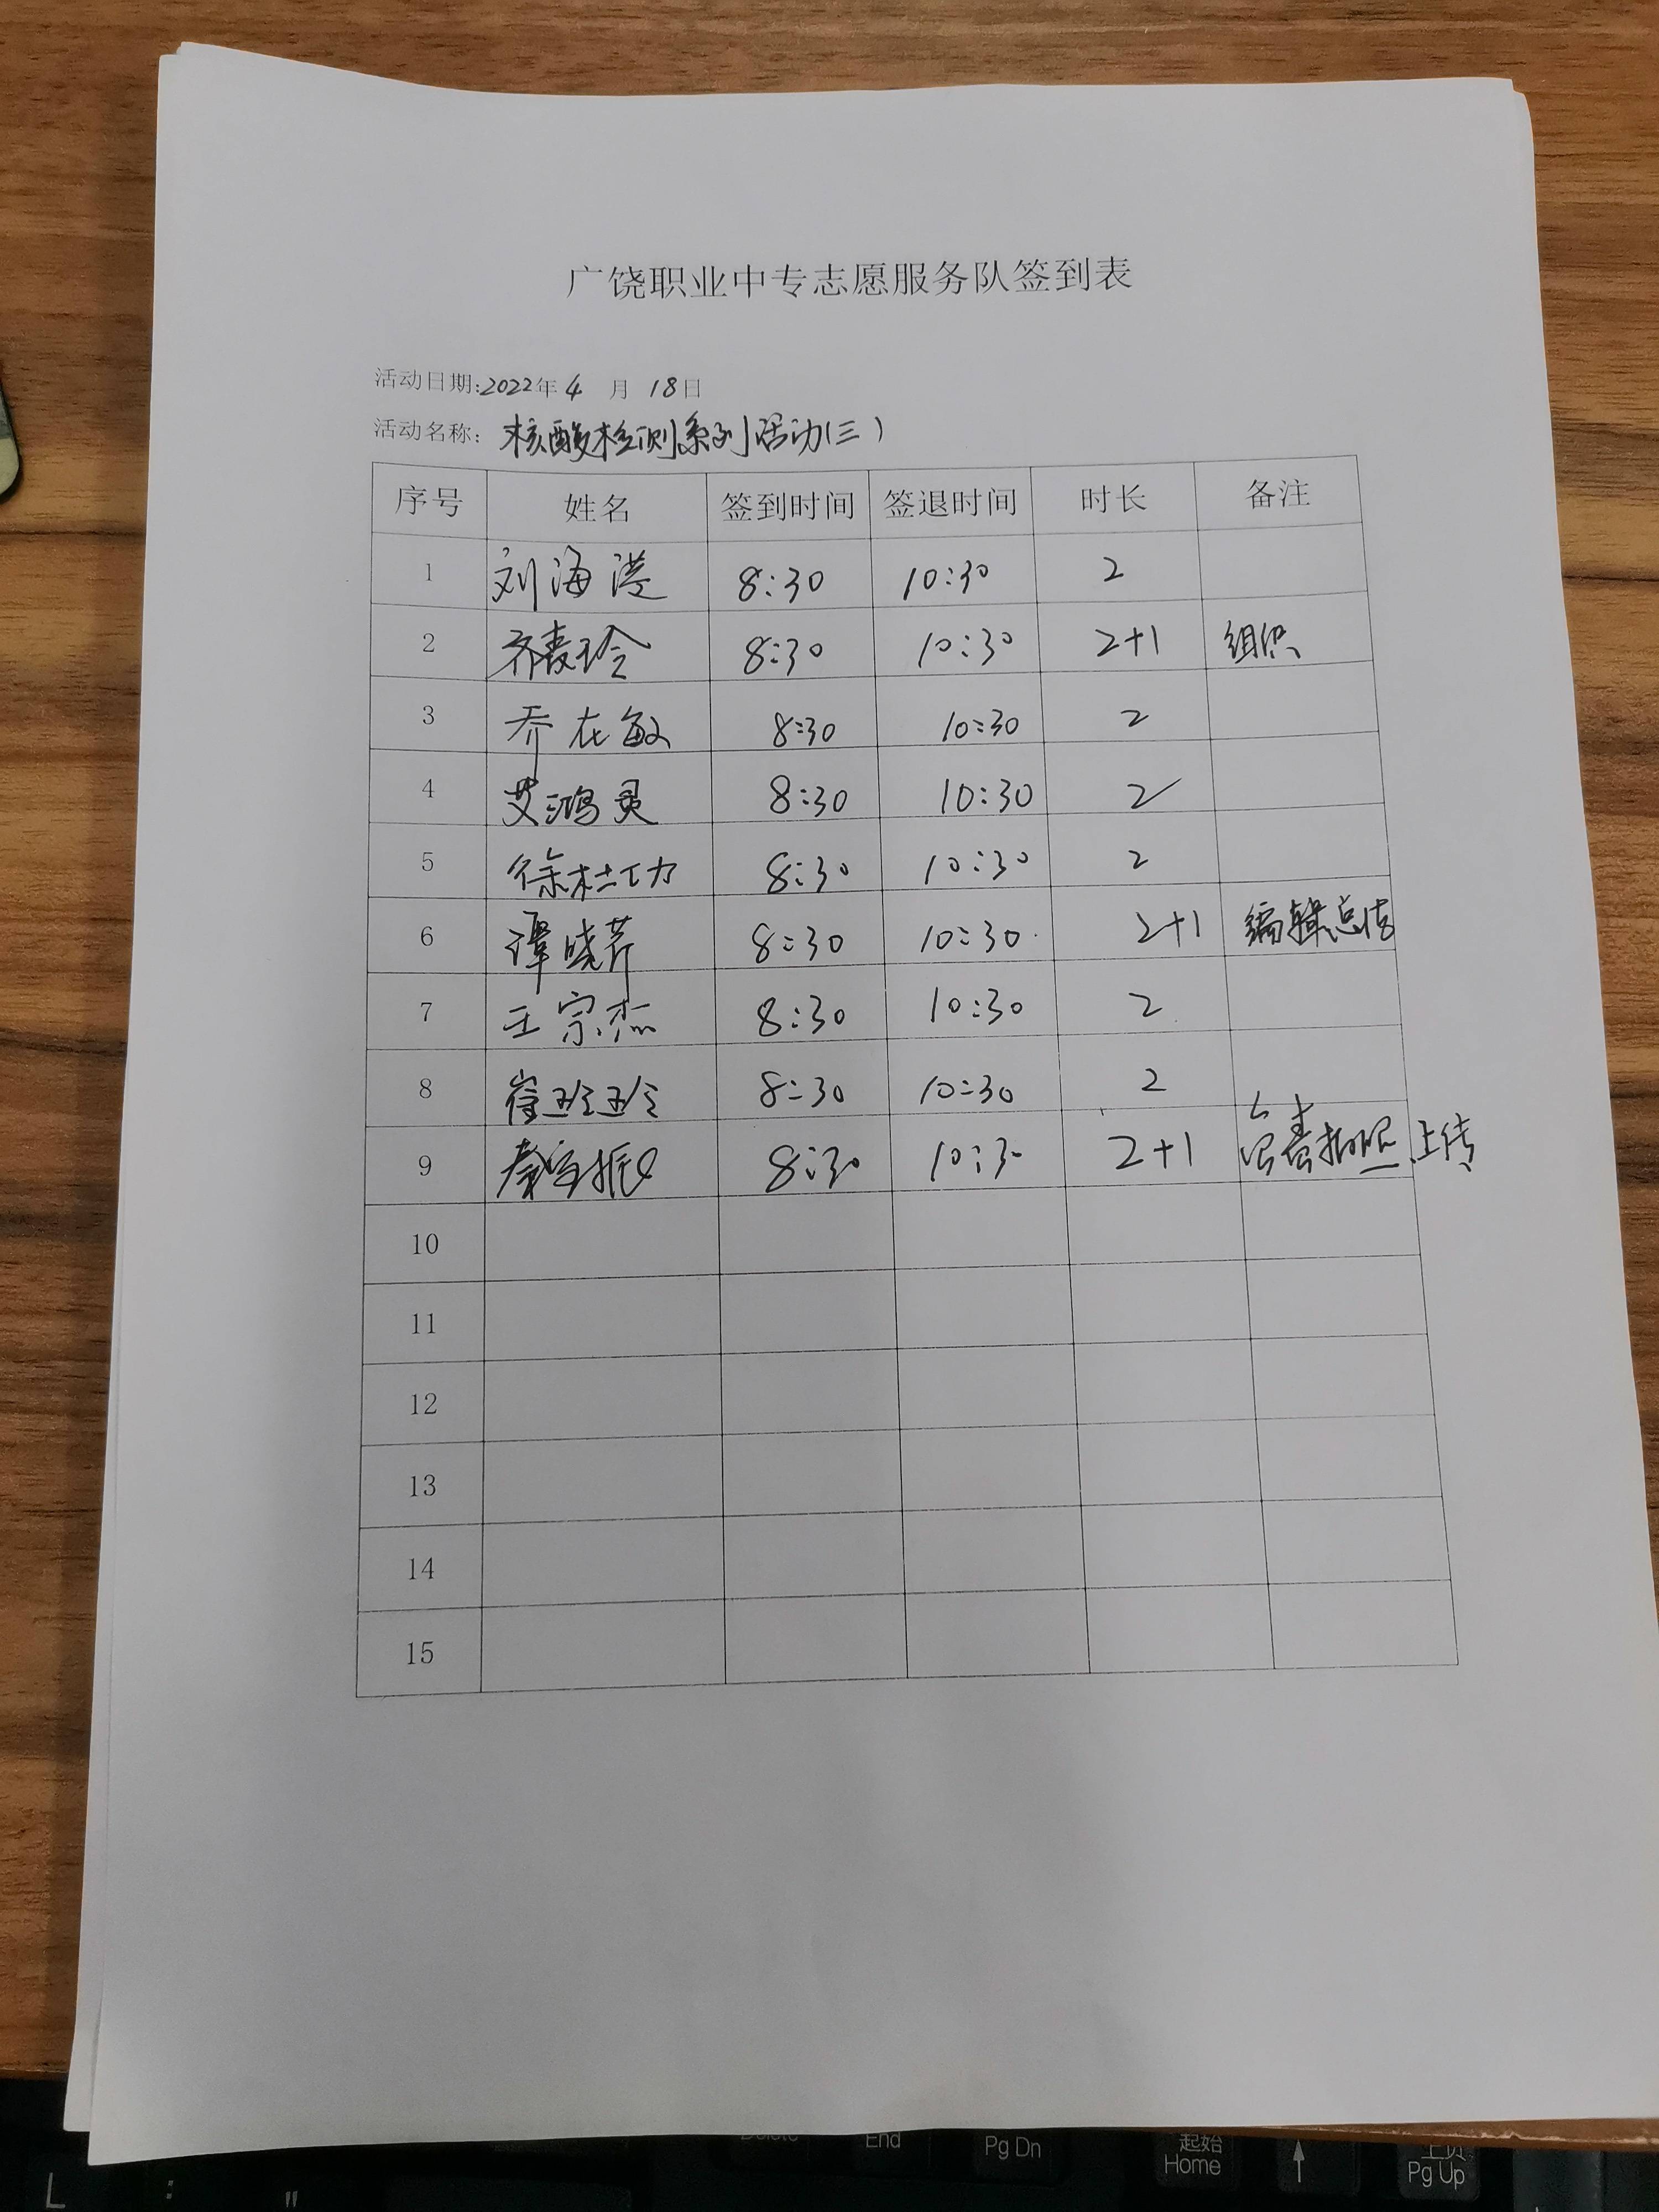 广饶职业中专志愿服务队签到表
活动日期:2022年4月18日
活动名称:核酸检测系列活动(三)
序号 姓名 签到时间 签退时间 时长 备注
1 刘海滨 8:30 10:30 2
2 齐麦玲 8:30 10:30 2+1 组织
3 乔在敏 8:30 10:30 2
4 艾鸿灵 8:30 10:30 2
5 徐桂功 8:30 10:30 2
6 谭晓芹 8:30 10:30 2+1 编辑总结
7 王宗杰 8:30 10:30 2
8 崔玲玲 8:30 10:30 2
9 秦宝振 8:30 10:30 2+1 负责拍照上传
10
11
12
13
14
15
End
Pg Dn
起始
Home
↑
Pg Up
L
:
"